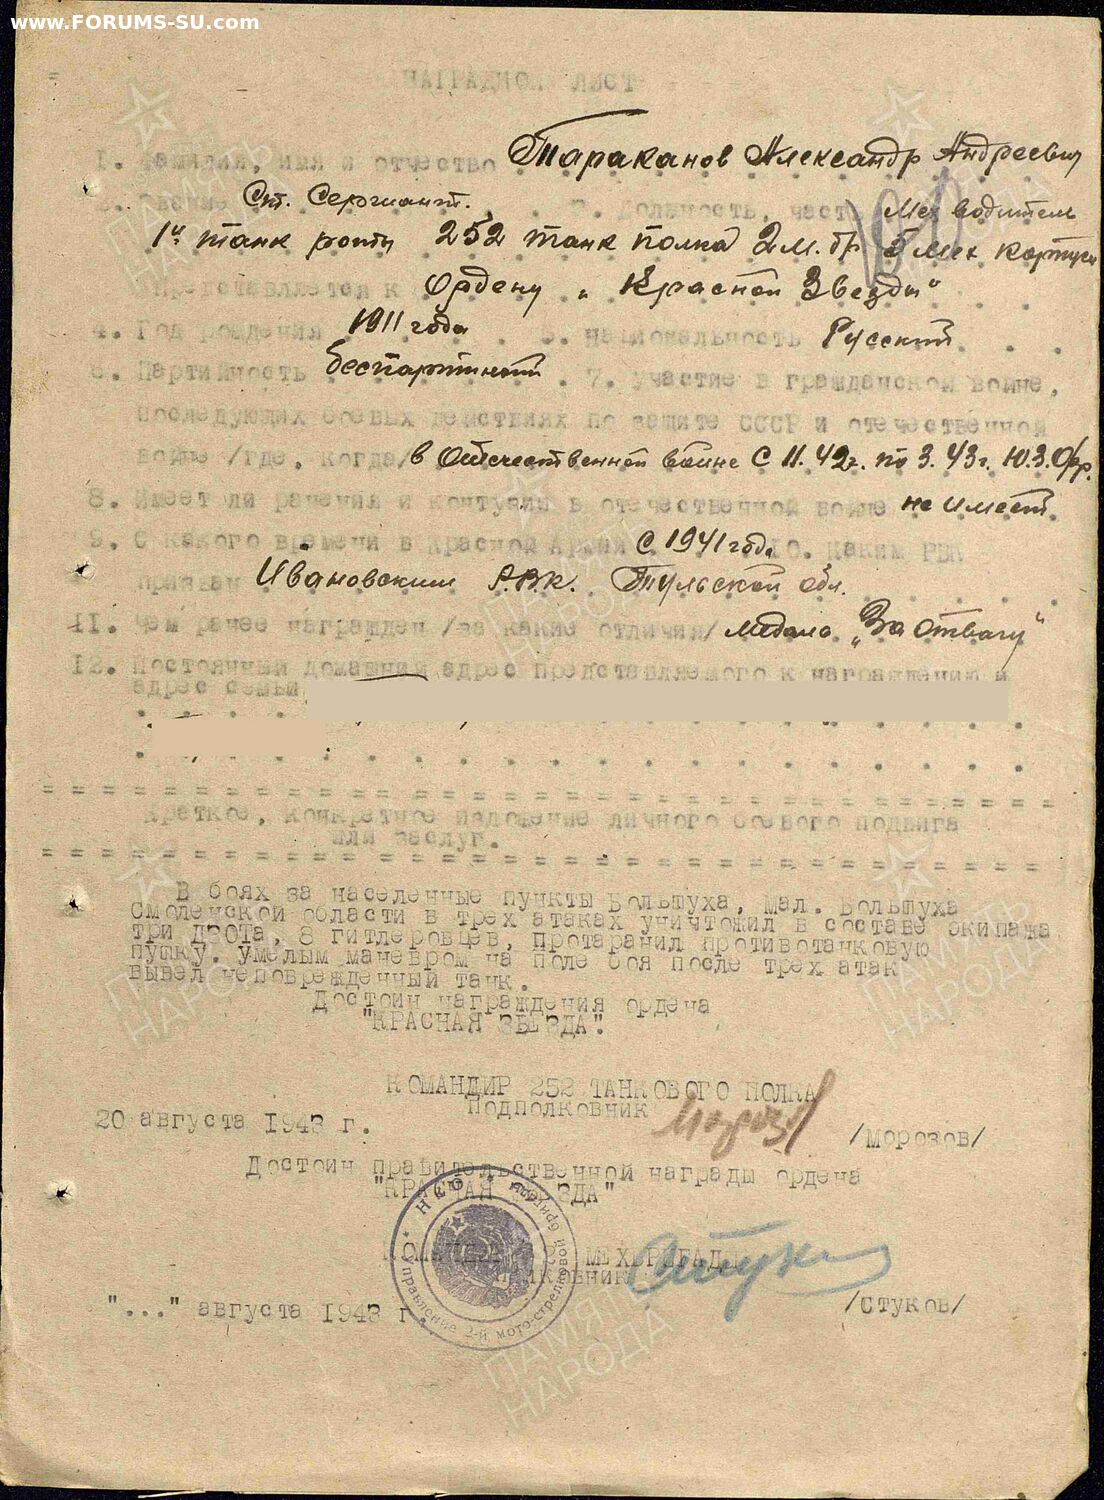 www.FORUMS-SU.com
НАГРАДНОЙ ЛИСТ
1. Фамилия, имя и отчество Тараканов Александр Андреевич
2. Звание Ст. Сержант. 3. Должность, часть Мех водитель
1й танк роты 252 танк полка 2 м. бр 5 мех корпуса
Представляется к Ордену „Красной Звезды"
4. Год рождения 1911 года 5. Национальность Русский
6. Партийность беспартийный 7. Участие в гражданской войне,
последующих боевых действиях по защите СССР и отечественной
войне /где, когда/ в Отечественной войне с 11.42г. по 3.43г. Ю.З.Фр.
8. Имеет ли ранения и контузии в отечественной войне не имеет
9. С какого времени в Красной Армии с 1941 года 10. Каким РВК
призван Ивановским РВК. Тульской обл.
11. Чем ранее награжден /за какие отличия/ медаль „За Отвагу"
12. Постоянный домашний адрес представляемого к награждению и
адрес семьи
Краткое, конкретное изложение личного боевого подвига
или заслуг.
В боях за населенные пункты Большуха, Мал. Большуха
Смоленской области в трех атаках уничтожил в составе экипажа
три ДЗОТа, 8 гитлеровцев, протаранил противотанковую
пушку. Умелым маневром на поле боя после трех атак
вывел неповрежденный танк.
Достоин награждения ордена
"КРАСНАЯ ЗВЕЗДА".
КОМАНДИР 252 ТАНКОВОГО ПОЛКА
Подполковник
/Морозов/
20 августа 1943 г.
Достоин правительственной награды ордена
"КРАСНАЯ ЗВЕЗДА"
КОМАНДИР 2 МЕХБРИГАДЫ
Полковник
/Стуков/
"..." августа 1943 г.
НКО
Управление 2-й мото-стрелковой бригады
ПАМЯТЬ НАРОДА